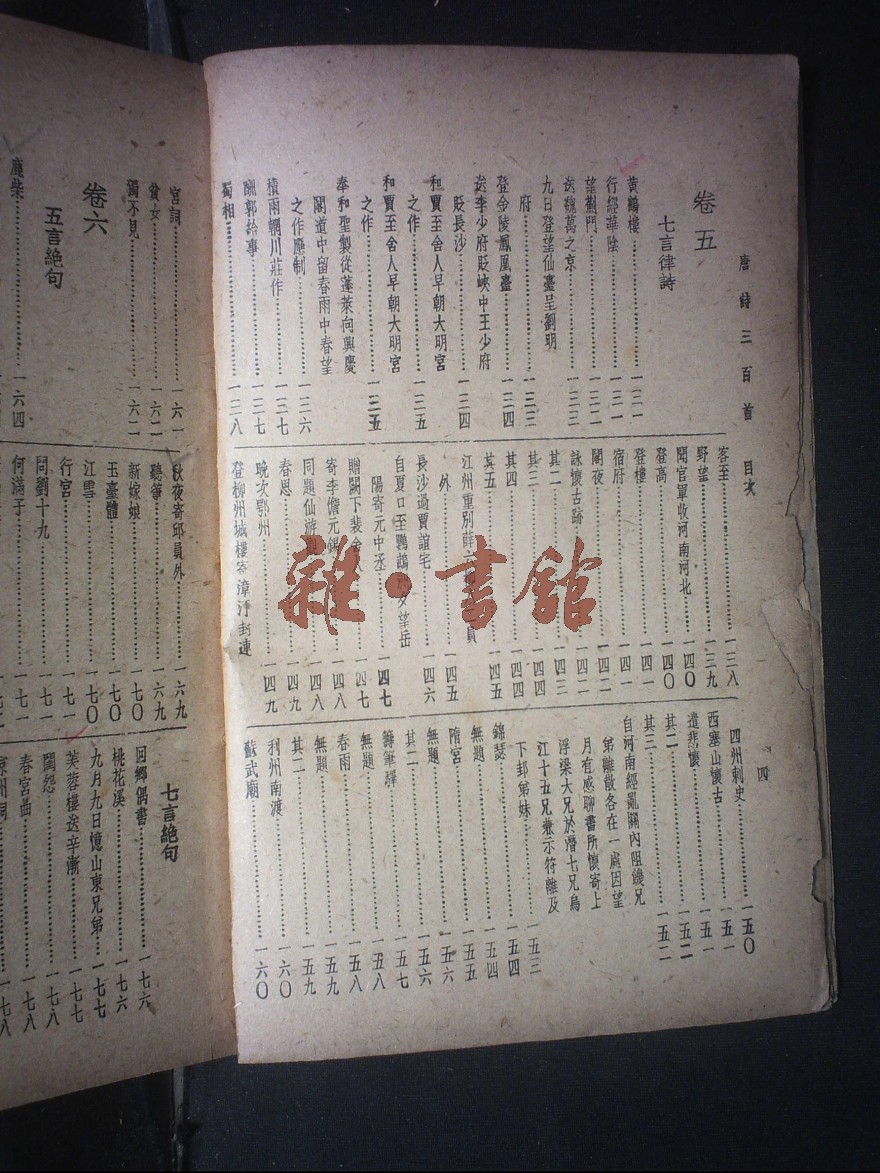 唐詩三百首 目次
四
卷五
七言律詩
黃鶴樓 一三一
行經華陰 一三一
望薊門 一三二
送魏萬之京 一三三
九日登望仙臺呈劉明
府 一三三
登金陵鳳凰臺 一三四
送李少府貶峽中王少府
貶長沙 一三四
和賈至舍人早朝大明宮
之作 一三五
和賈至舍人早朝大明宮
之作 一三五
奉和聖製從蓬萊向興慶
閣道中留春雨中春望
之作應制 一三六
積雨輞川莊作 一三七
酬郭給事 一三七
蜀相 一三八
客至 一三八
野望 一三九
聞官軍收河南河北 一四〇
登高 一四〇
登樓 一四一
宿府 一四一
閣夜 一四二
詠懷古跡 一四三
其二 一四三
其三 一四四
其四 一四四
其五 一四五
江州重別薛六
員
外 一四五
長沙過賈誼宅 一四六
自夏口至鸚鵡
夕望岳
陽寄元中丞 一四七
贈闕下裴舍人 一四七
寄李儋元錫 一四八
同題仙游觀 一四八
春思 一四九
晚次鄂州 一四九
登柳州城樓寄漳汀封連
四州刺史 一五〇
西塞山懷古 一五一
遣悲懷 一五一
其二 一五二
其三 一五二
自河南經亂關內阻饑兄
弟離散各在一處因望
月有感聊書所懷寄上
浮梁大兄於潛七兄烏
江十五兄兼示符離及
下邽弟妹 一五三
錦瑟 一五四
無題 一五四
隋宮 一五五
無題 一五六
其二 一五六
籌筆驛 一五七
無題 一五八
春雨 一五八
無題 一五九
其二 一五九
利州南渡 一六〇
蘇武廟 一六〇
宮詞 一六一
貧女 一六二
獨不見 一六二
卷六
五言絕句
鹿柴 一六四
秋夜寄邱員外 一六九
聽箏 一六九
新嫁娘 一七〇
玉臺體 一七〇
江雪 一七〇
行宮 一七一
問劉十九 一七一
何滿子
七言絕句
回鄉偶書 一七六
桃花溪 一七六
九月九日憶山東兄弟 一七七
芙蓉樓送辛漸 一七七
閨怨 一七八
春宮曲 一七八
涼州詞 一七八
雜·書館